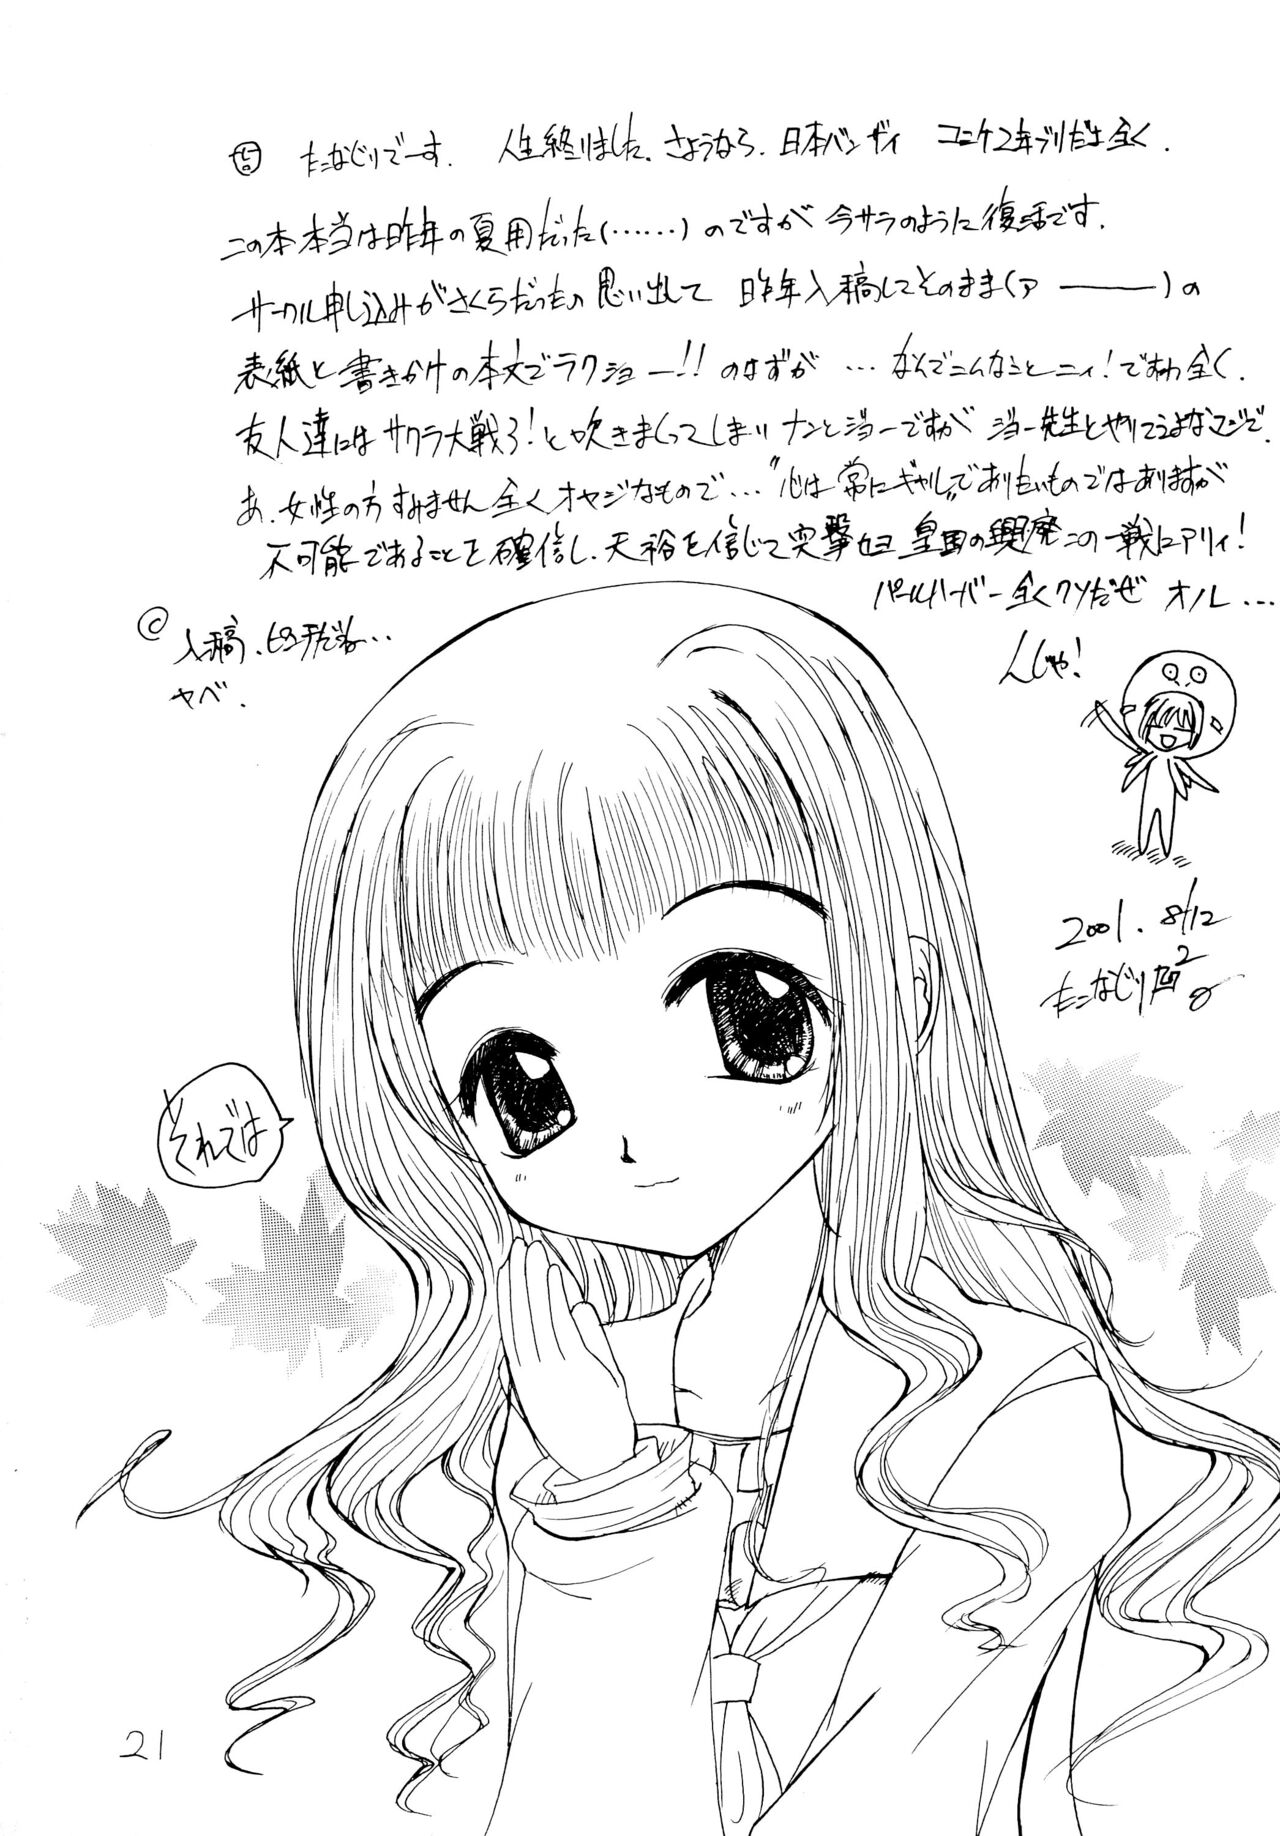 たこなじりでーす. 人生終りました. さようなら. 日本バンザイ コミケ2年ブリだよ全く.
この本本当は昨年の夏用だった(……)のですが 今サラのように復活です.
サークル申し込みがさくらだったの思い出して 昨年入稿してそのまま(ア———)の
表紙と書きかけの本文でラクショー!! のはずが …なんでこんなことニィ!ですわ全く.
友人達にはサクラ大戦3!と吹きまくってしまい ナンとジョーですが ジョー先生とやりてえよなマジで.
あ.女性の方すみません全くオヤジなもので…"心は常にギャル"でありたいものではありますが
不可能であることを確信し.天裕を信じて突撃セヨ 皇国の興廃この一戦にアリィ!
パールハーバー全くクソだぜ オル…
んじゃ!
©
入稿.ピンチだね…
ヤベ.
2001. 8/12
たこなじり
それでは
21